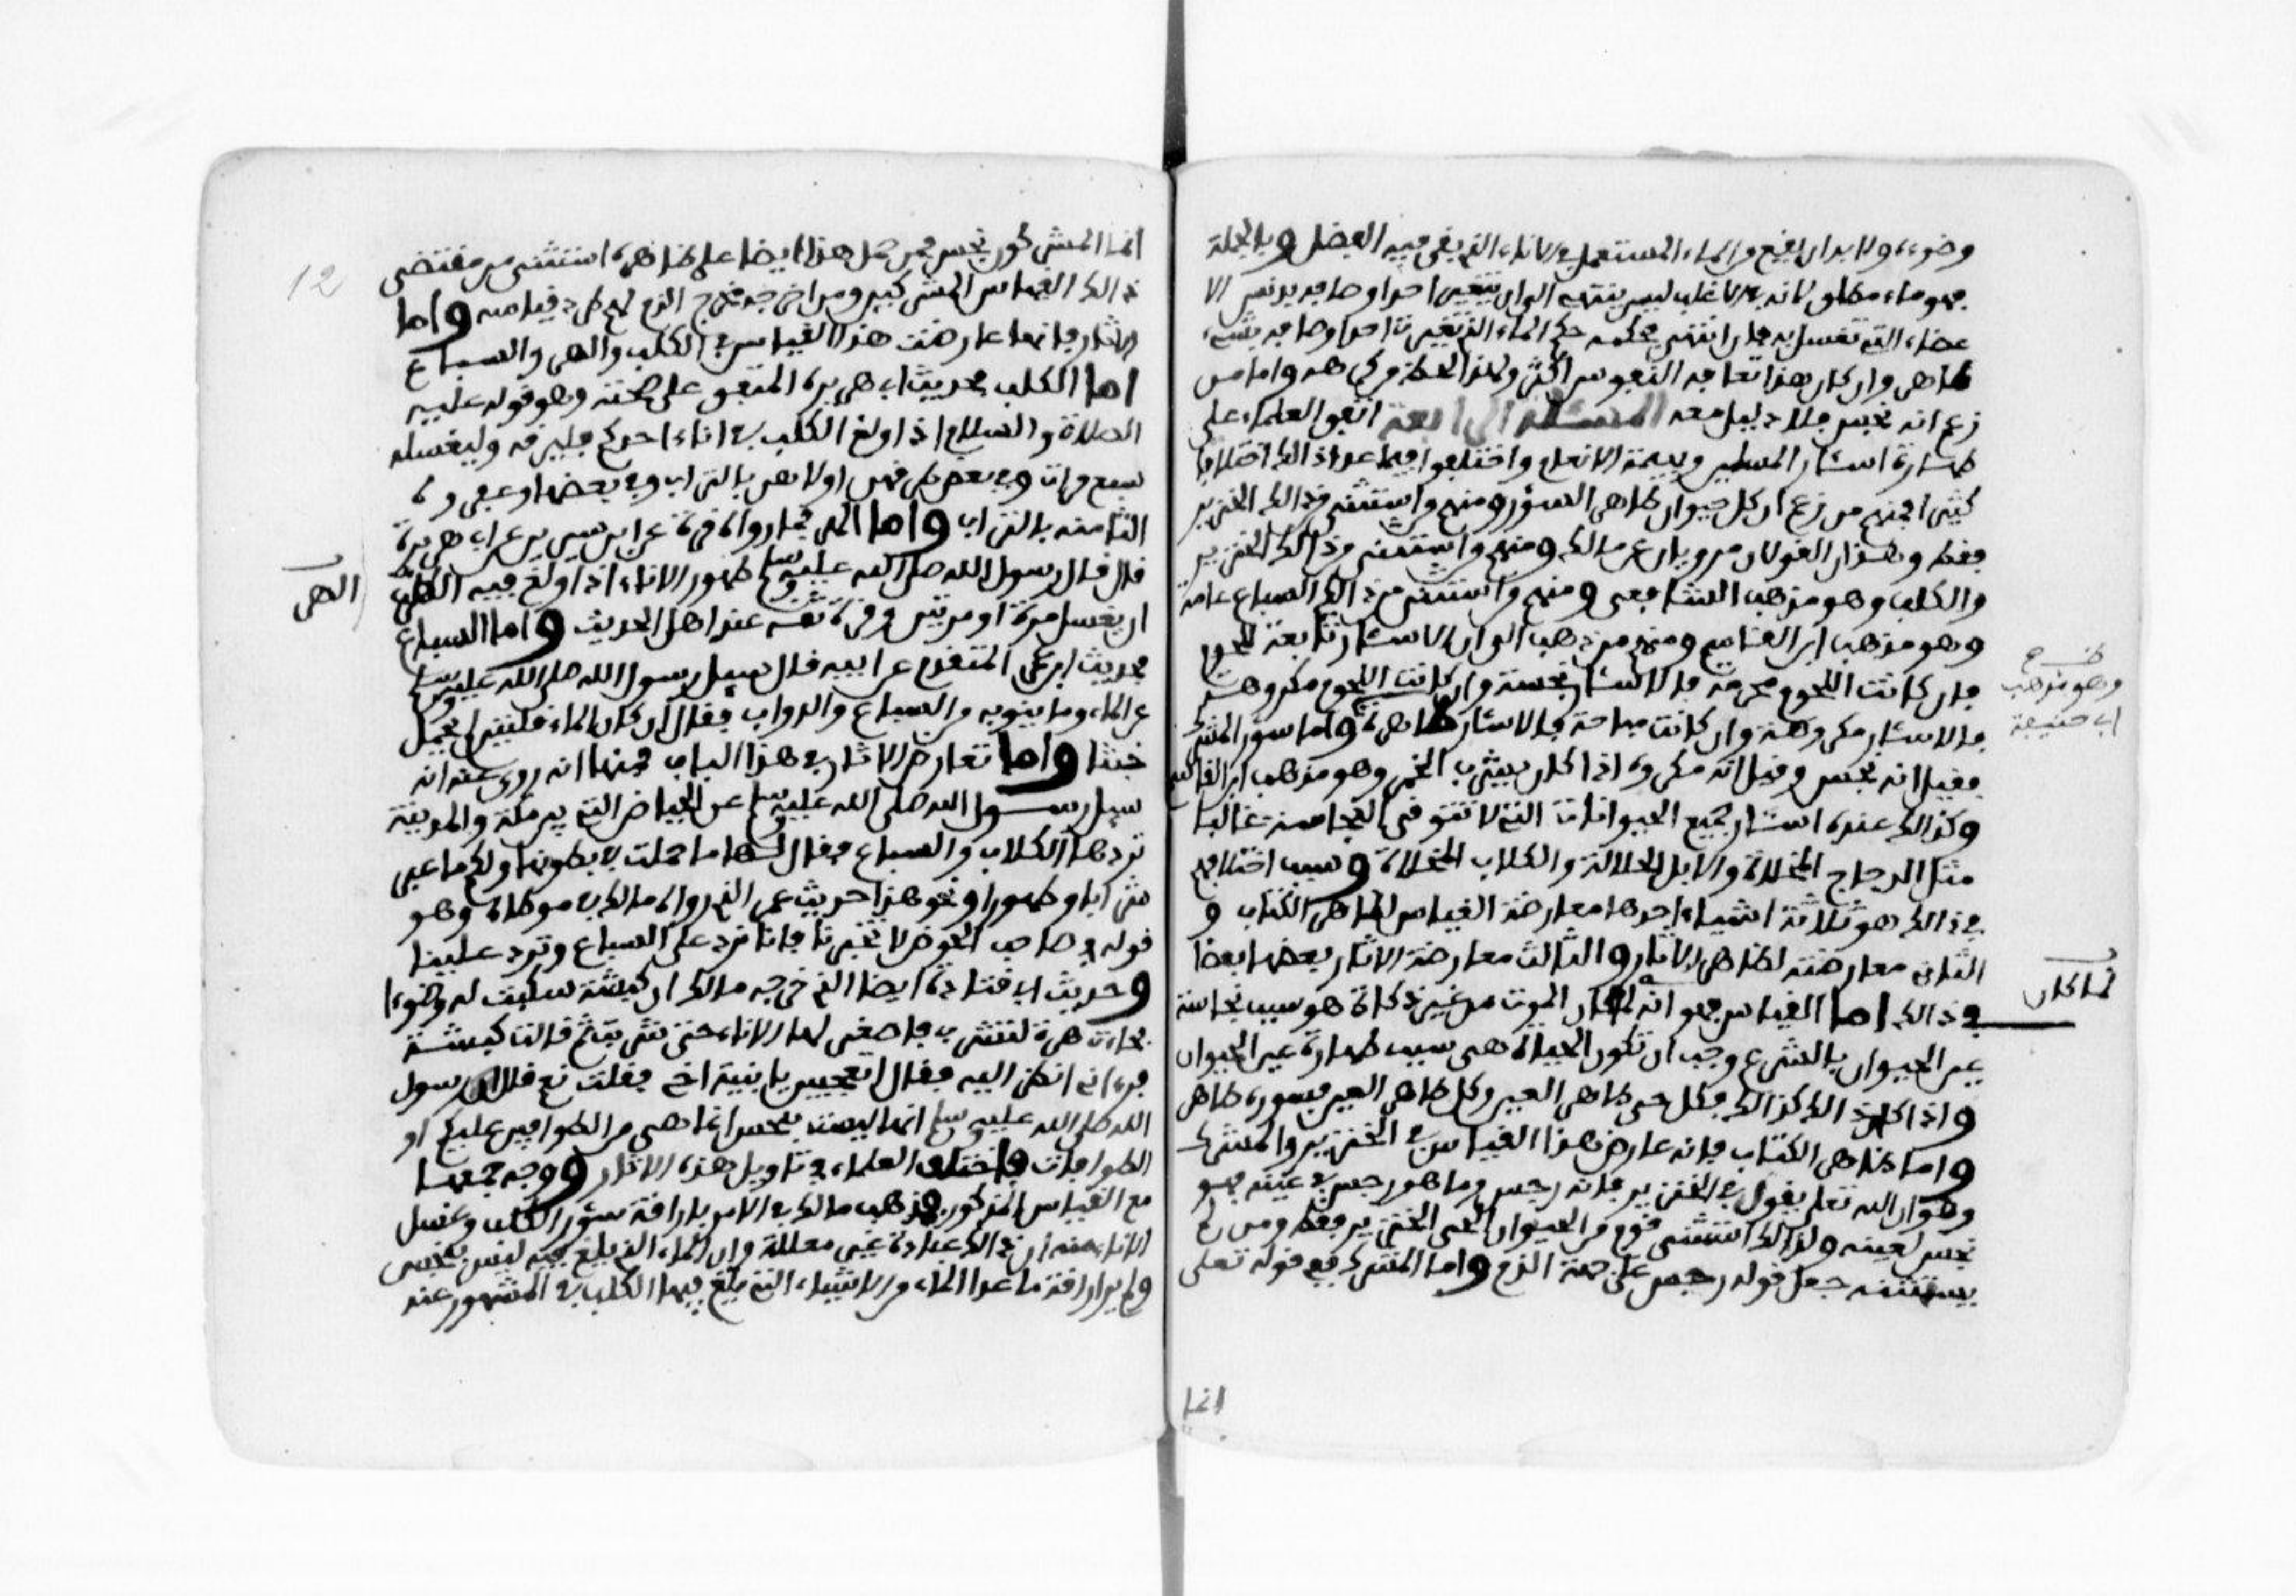 وضوءه ولا بد ان يقع من الماء المستعمل في الاناء الذي بقي فيه الفضل وبالجملة
فهو ماء مطلق لانه في الاغلب ليس ينتهي الى ان يتغير احد اوصافه بدنس الا
عضاء التي تغسل به فان انتهى فحكمه حكم الماء الذي تغير احد اوصافه بشيء
طاهر وان كان هذا تعافه النفوس اكثر ولهذا لحظ من كرهه واما من
زعم انه نجس فلا دليل معه المسئلة الرابعة اتفق العلماء على
طهارة اسئار المسلمين وبهيمة الانعام واختلفوا فيما عدا ذالك اختلافا
كثيرا فمنهم من زعم ان كل حيوان طاهر السؤر ومنهم من استثنى من ذالك الخنزير
فقط وهذان القولان مرويان عن مالك ومنهم من استثنى من ذالك الخنزير
والكلب وهو مذهب الشافعي ومنهم من استثنى من ذالك السباع عامة
وهو مذهب ابن القاسم ومنهم من ذهب الى ان الاسئار تابعة للحوم
فان كانت اللحوم محرمة فالاسئار نجسة وان كانت اللحوم مكروهة
فالاسئار مكروهة وان كانت مباحة فالاسئار طاهرة واما سؤر المشرك
فقيل انه نجس وقيل انه مكروه اذا كان يشرب الخمر وهو مذهب ابن القاسم
وكذالك عنده اسئار جميع الحيوانات التي لا تتوقى النجاسة غالبا
مثل الدجاج المخلاة والابل الجلالة والكلاب المخلاة وسبب اختلافهم
في ذالك هو ثلاثة اشياء احدها معارضة القياس لظاهر الكتاب و
الثاني معارضته لظاهر الاثار والثالث معارضة الاثار بعضها بعضا
في ذالك اما القياس فهو انه لما كان الموت من غير ذكاة هو سبب نجاسة
عين الحيوان بالشرع وجب ان تكون الحياة هي سبب طهارة عين الحيوان
واذا كان ذالك كذالك فكل حي طاهر العين وكل طاهر العين فسؤره طاهر
واما ظاهر الكتاب فانه عارض هذا القياس في الخنزير والمشرك
وهو ان الله تعلى يقول في الخنزير فانه رجس وما هو رجس في عينه فهو
نجس لعينه ولذالك استثنى قوم من الحيوان الحي الخنزير فقط ومن لم
يستثنه جعل قوله رجس على جهة الذم واما المشرك ففي قوله تعلى
وهو مذهب
ابي حنيفة
لما كان
انما
انما المشركون نجس فمن حمل هذا ايضا على ظاهره استثنى من مقتضى
ذالك القياس المشركين ومن اخرجه مخرج الذم لهم طرد قياسه واما
الاثار فانها عارضت هذا القياس في الكلب والهر والسباع
اما الكلب فحديث ابي هريرة المتفق على صحته وهو قوله عليه
الصلاة والسلام اذا ولغ الكلب في اناء احدكم فليرقه وليغسله
سبع مرات وفي بعض طرقه اولاهن بالتراب وفي بعضها وعفروه
الثامنة بالتراب واما الهر فما رواه قرة عن ابن سيرين عن ابي هريرة
قال قال رسول الله صلى الله عليه وسلم طهور الاناء اذا ولغ فيه الكلب
ان يغسل مرة او مرتين وقرة ثقة عند اهل الحديث واما السباع
فحديث ابن عمر المتقدم عن ابيه قال سيل رسول الله صلى الله عليه وسلم
عن الماء وما ينوبه من السباع والدواب فقال ان كان الماء قلتين لم يحمل
خبثا واما تعارض الاثار في هذا الباب فمنها انه روي عنه انه
سيل رسول الله صلى الله عليه وسلم عن الحياض التي بين مكة والمدينة
تردها الكلاب والسباع فقال لها ما حملت في بطونها ولكم ما غبر
شرابا وطهورا ونحو هذا حديث عمر الذي رواه مالك في موطاه وهو
قوله يا صاحب الحوض لا تخبرنا فانا نرد على السباع وترد علينا
وحديث ابي قتادة ايضا الذي خرجه مالك ان كبشة سكبت له وضوءا
فجاءت هرة لتشرب فاصغى لها الاناء حتى شربت ثم قالت كبشة
فرءاني انظر اليه فقال اتعجبين يا بنية اخي فقلت نعم فقال ان رسول
الله صلى الله عليه وسلم انها ليست بنجس انما هي من الطوافين عليكم او
الطوافات واختلف العلماء في تاويل هذه الاثار ووجه جمعها
مع القياس المذكور فذهب مالك في الامر باراقة سؤر الكلب وغسل
الاناء منه ان ذالك عبادة غير معللة وان الماء الذي يلغ فيه ليس بنجس
ولم ير اراقة ما عدا الماء من الاشياء التي يلغ فيها الكلب في المشهور عنه
الهر
12